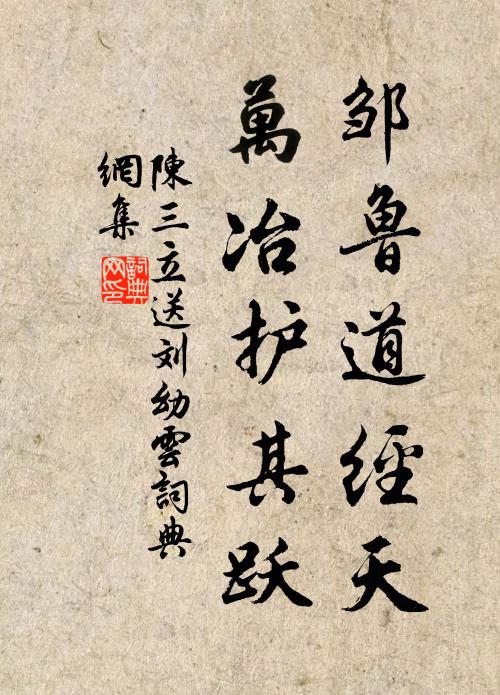 邹魯道經天
萬冶护其跃
陳三立送刘幼雲詞典
網集
詞典
网印